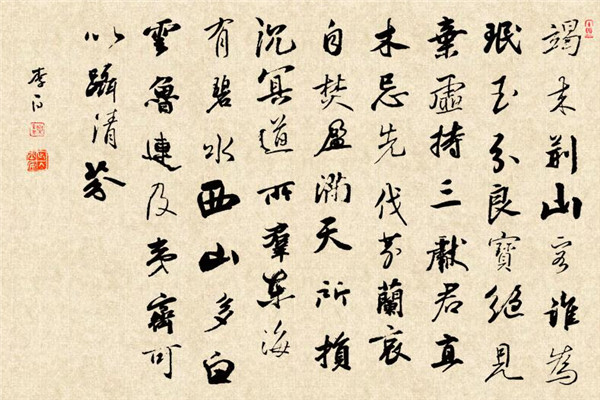 竭来荆山客谁為
珉玉分良寶絕見
棄虛持三獻君直
木忌先伐芬蘭哀
自焚盈滿天所損
沉冥道所羣东海
有碧水西山多白
雲魯連及夷齊可
以躡清芬
李白